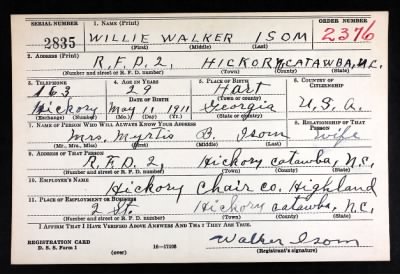 SERIAL NUMBER 1. NAME (Print) ORDER NUMBER
2835 WILLIE WALKER ISOM 2376
(First) (Middle) (Last)
2. ADDRESS (Print)
R.F.D. 2, HICKORY, CATAWBA, N.C.
(Number and street or R. F. D. number) (Town) (County) (State)
3. TELEPHONE 4. AGE IN YEARS 5. PLACE OF BIRTH 6. COUNTRY OF CITIZENSHIP
163 29 Hart
DATE OF BIRTH (Town or county)
Hickory May 11, 1911 Georgia U.S.A.
(Exchange) (Number) (Mo.) (Day) (Yr.) (State or country)
7. NAME OF PERSON WHO WILL ALWAYS KNOW YOUR ADDRESS 8. RELATIONSHIP OF THAT PERSON
Mrs. Myrtis B. Isom wife
(Mr., Mrs., Miss) (First) (Middle) (Last)
9. ADDRESS OF THAT PERSON
R.F.D. 2, Hickory Catawba, N.C.
(Number and street or R. F. D. number) (Town) (County) (State)
10. EMPLOYER'S NAME
Hickory Chair Co. Highland
11. PLACE OF EMPLOYMENT OR BUSINESS
2 St. Hickory Catawba, N.C.
(Number and street or R. F. D. number) (Town) (County) (State)
I AFFIRM THAT I HAVE VERIFIED ABOVE ANSWERS AND THAT THEY ARE TRUE.
REGISTRATION CARD
D. S. S. Form 1 (over) 16—17105 Walker Isom
(Registrant's signature)